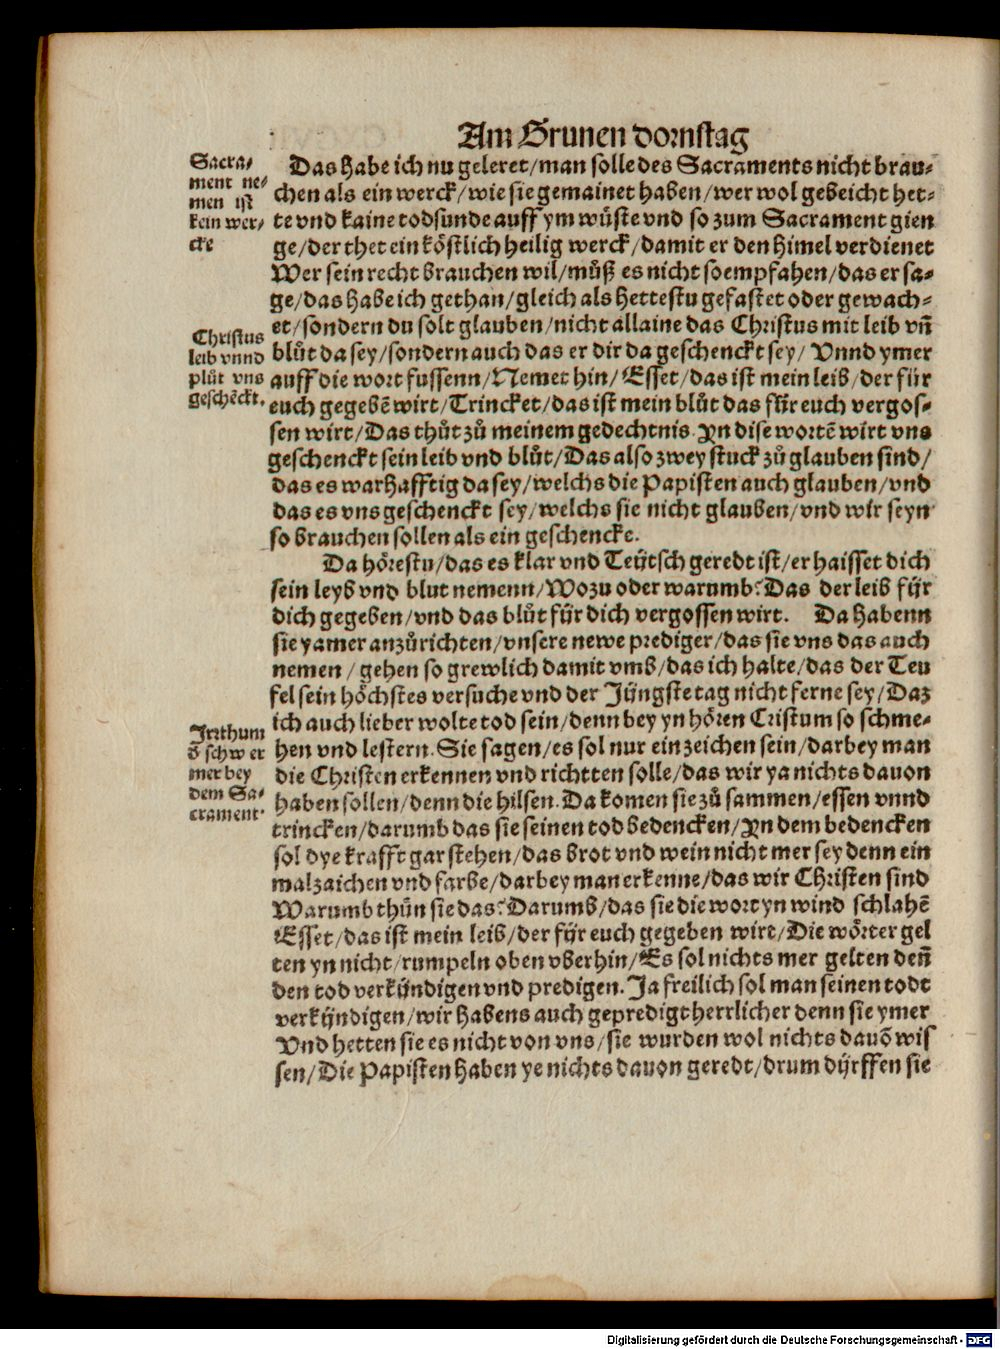 Am Grunen dornstag
Sacra⸗
ment ne⸗
men ist
kein wer⸗
cke
Das habe ich nu geleret/man solle des Sacraments nicht brau⸗
chen als ein werck/wie sie gemainet haben/wer wol gebeicht het⸗
te vnd kaine todsunde auff ym wůste vnd so zum Sacrament gien
ge/der thet ein köstlich heilig werck/damit er den himel verdienet
Wer sein recht brauchen wil/můß es nicht so empfahen/das er sa⸗
ge/das habe ich gethan/gleich als hettestu gefastet oder gewach⸗
et/sondern du solt glauben/nicht allaine das Christus mit leib vñ
blůt da sey/sondern auch das er dir da geschenckt sey/ Vnnd ymer
auff die wort fussenn/Nemet hin/Esset/das ist mein leib/der für
euch gegebē wirt/Trincket/das ist mein blůt das für euch vergos⸗
sen wirt/Das thůt zů meinem gedechtnis. Yn dise wortē wirt vns
geschenckt sein leib vnd blůt/Das also zwey stuck zů glauben sind/
das es warhafftig da sey/welchs die Papisten auch glauben/vnd
das es vns geschenckt sey/welchs sie nicht glauben/vnd wir seyn
so brauchen sollen als ein geschencke.
Christus
leib vnnd
plůt vns
geschēckt.
Da hörestu/das es klar vnd Teütsch geredt ist/er haisset dich
sein leyb vnd blut nemenn/Wozu oder warumb? Das der leib für
dich gegeben/vnd das blůt für dich vergossen wirt. Da habenn
sie yamer anzůrichten/vnsere newe prediger/das sie vns das auch
nemen/gehen so grewlich damit vmb/das ich halte/das der Teu
fel sein höchstes versuche vnd der Jüngste tag nicht ferne sey/Daz
ich auch lieber wolte tod sein/denn bey yn hören Cristum so schme⸗
hen vnd lestern. Sie sagen/es sol nur ein zeichen sein/darbey man
die Christen erkennen vnd richtten solle/das wir ya nichts dauon
haben sollen/denn die hilsen. Da komen sie zů sammen/essen vnnd
trincken/darumb das sie seinen tod bedencken/Yn dem bedencken
sol dye krafft gar stehen/das brot vnd wein nicht mer sey denn ein
malzaichen vnd farbe/darbey man erkenne/das wir Christen sind
Warumb thůn sie das? Darumb/das sie die wort yn wind schlahē
Esset/das ist mein leib/der für euch gegeben wirt/Die wörter gel
ten yn nicht/rumpeln oben vberhin/Es sol nichts mer gelten deñ
den tod verkündigen vnd predigen. Ja freilich sol man seinen todt
verkündigen/wir habens auch gepredigt herrlicher denn sie ymer
Vnd hetten sie es nicht von vns/sie wurden wol nichts dauō wis
sen/Die Papisten haben ye nichts dauon geredt/drum dürffen sie
Jrthum
schwer
mer bey
dem Sa⸗
crament.
Digitalisierung gefördert durch die Deutsche Forschungsgemeinschaft - DFG